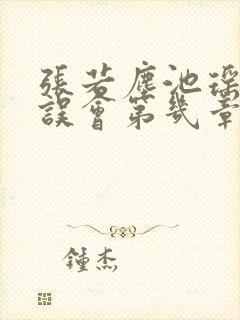 張若塵池瑤
誤會第幾章
鍾杰